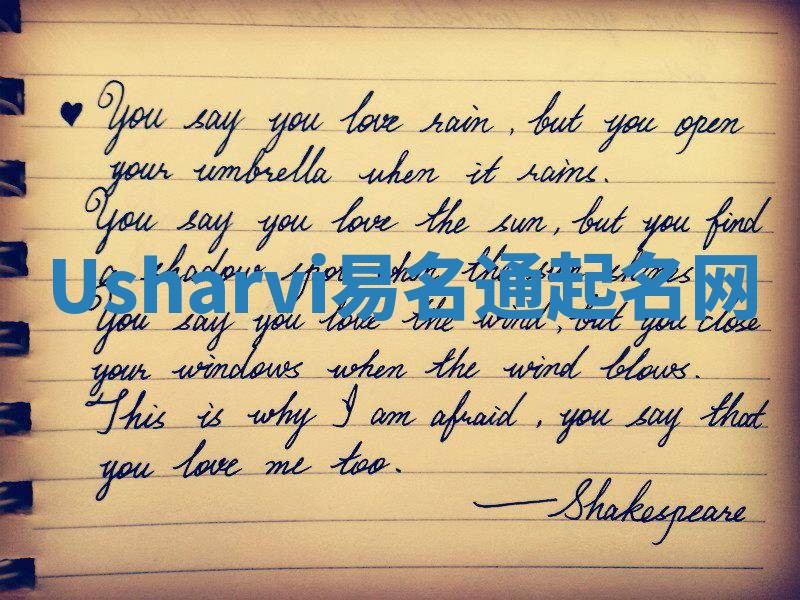 ♥ You say you love rain, but you open
your umbrella when it rains.
You say you love the sun, but you find
a shadow spot when the sun shines
Usharvi易名通起名网
You say you love the wind, but you close
your windows when the wind blows.
This is why I am afraid, you say that
you love me too.
— Shakespeare